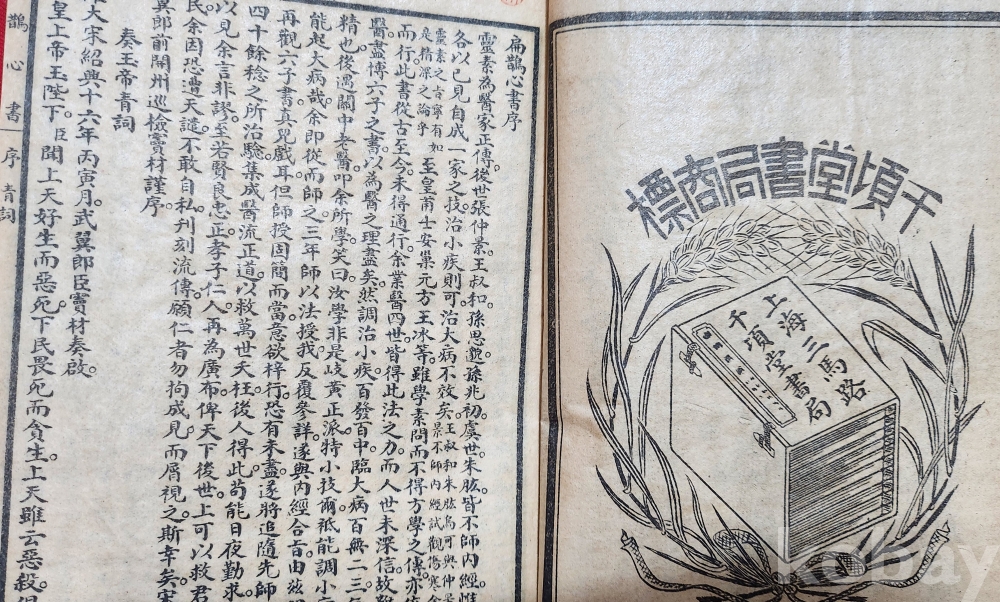 千頃堂書局商標
上海三馬路
千頃堂書局
扁鵲心書序
靈素為醫家正傳。後世張仲景。王叔和。孫思邈。孫兆。初虞世。朱肱。皆不師內經。惟
各以己見自成一家之技。治小疾則可。治大病不效矣。王叔和朱肱尚可與仲景
景不師內經試觀傷寒金
靈素之旨寧有如
是精深之論乎至皇甫士安。巢元方。王冰等。雖學素問。而不得方學之傳。亦依
而行。此書從古至今。未得通行。余業醫四世。皆得此法之力。而人世未深信。故
醫盡博六子之書。以為醫之理盡矣。然調治小疾。百發百中。臨大病百無二三。
精也。後遇關中老醫。叩余所學。笑曰。汝學非是岐黃正派。特小技爾。祗能調小
能起大病哉。余即從而師之。三年。師以法授我。反覆參詳。遂與內經合旨。由茲
再觀六子書。真兒戲耳。但師授固簡。而當意欲梓行。恐有未盡。遂將追隨先師
四十餘稔之所治驗。集成醫流正道。以救萬世夭枉。後人得此。苟能日夜勤求
以見余言非謬。至若賢良忠正。孝子仁人。再為廣布。俾天下後世。上可以救君
民。余因恐遭天譴。不敢自私。刋刻流傳。願仁者勿拘成見。而屑視之。斯幸矣。宋
翼郎前開州巡檢竇材謹序
奏玉帝青詞
大宋紹興十六年丙寅月。武翼郎臣竇材奏啟
皇上帝玉陛下。臣聞上天好生而惡死。下民畏死而貪生。上天雖云惡殺
鵲心書 序 青詞
kobay